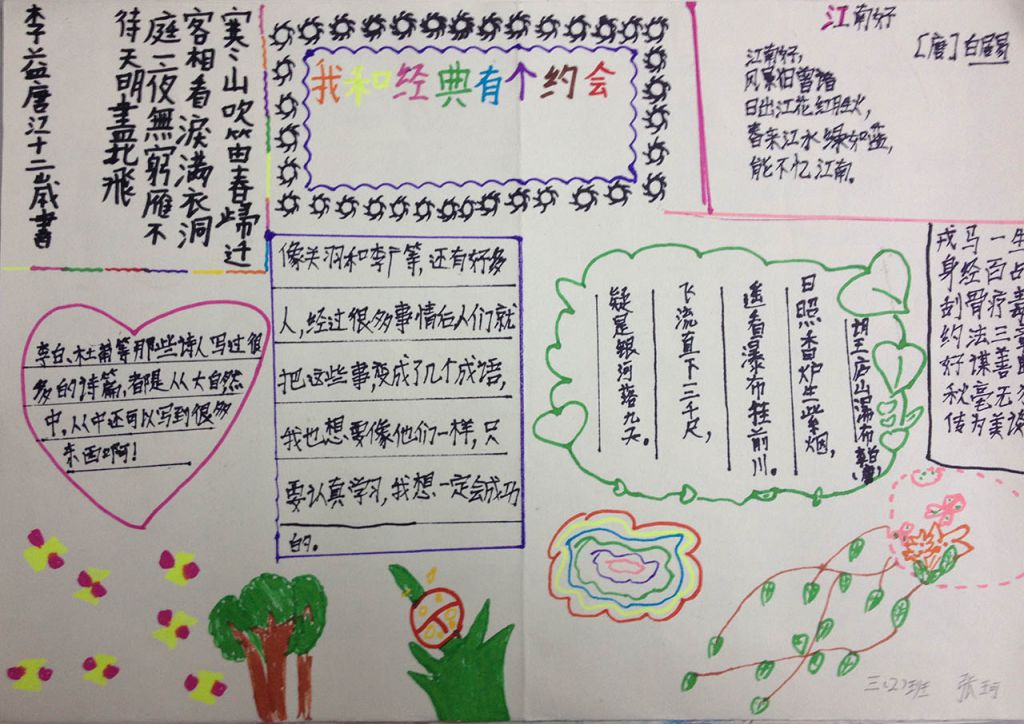 寒山吹笛春歸迁
客相看淚满衣洞
庭一夜無窮雁不
待天明盡北飛
李益唐江十二嵗書
我和经典有个约会
江南好
[唐]白居易
江南好,
风景旧曾谙
日出江花红胜火,
春来江水绿如蓝,
能不忆江南。
像关羽和李广等,还有好多
人,经过很多事情后人们就
把这些事,变成了几个成语,
我也想要像他们一样,只
要认真学习,我想一定会成功
的。
李白、杜甫等那些诗人写过很
多的诗篇,都是从大自然
中,从中还可以写到很多
东西啊!
望庐山瀑布 李白(唐)
日照香炉生紫烟,
遥看瀑布挂前川。
飞流直下三千尺,
疑是银河落九天。
戎马一生
身经百
刮骨疗毒
约法三
好谋善
秋毫无
传为美谈
三(2)班 张珂